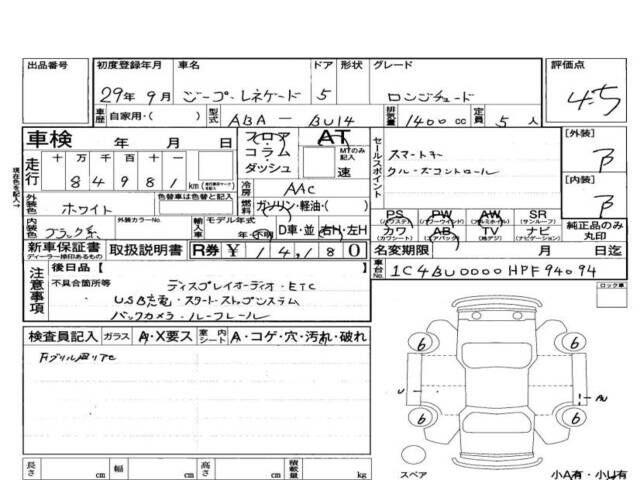 出品番号 初度登録年月 車名 ドア 形状 グレード 評価点
29年 9月 ジープ・レネゲード 5 ロンジチュード 4.5
車歴 自家用・( ) 型式 ABA — BU14 排気量 1400 cc 定員 5 人
車検 年 月 日 フロア・コラム・ダッシュ AT MTのみ記入 速
走行 十 万 千 百 十 一
8 4 9 8 1 km
セールスポイント
スマートキー
クルーズコントロール
[外装]
B
[内装]
B
冷房 AAC
外装色 ホワイト 色替車は色替と記入 燃料 ガソリン・軽油・( )
内装色 ブラック系 外装カラーNo. 輸入車 モデル年式 年・不明 D車・並 右H・左H
PS (パワステ) PW (パワーウインド) AW (アルミホイル) SR (サンルーフ)
カワ (カワシート) AB (エアバック) TV (地デジ) ナビ (ナビゲーション)
純正品のみ丸印
新車保証書 ディーラー捺印あるもの 取扱説明書 R券 ¥ 14,180
名変期限 月 日迄
車台No. 1C4BU0000HPF94094
現在色を記入→
注意事項 後日品 [ ]
不具合箇所等 ディスプレイオーディオ・ETC
USB充電・スタートストップシステム
バックカメラ・ルーフレール
ロック車
検査員記入 ガラス A・X要ス 室内シート A・コゲ・穴・汚れ・破れ
6 6
U AU
6 6
スペア
長さ cm 幅 cm 高さ cm 積載量 kg
小A有・小U有